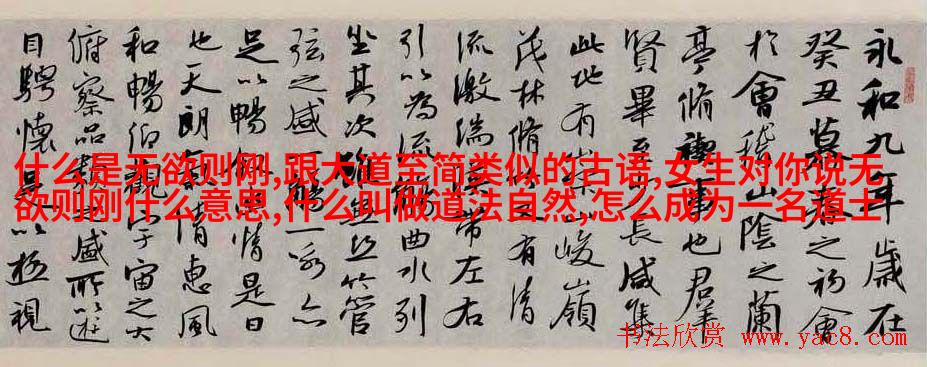 永和九年歲在
癸丑暮春之初會
於會稽山陰之蘭
亭脩禊事也羣
賢畢至少長咸集
此地有崇山峻嶺
茂林脩竹又有清
流激湍暎帶左右
引以為流觴曲水列
坐其次雖無絲竹管
弦之盛一觴一詠亦
足以暢叙幽情是日
也天朗氣清惠風
和暢仰觀宇宙之大
俯察品類之盛所以遊
目騁懷足以極視
什么是无欲则刚,跟大道至简类似的古语,女生对你说无
欲则刚什么意思,什么叫做道法自然,怎么成为一名道士
书法欣赏 www.yac8.com